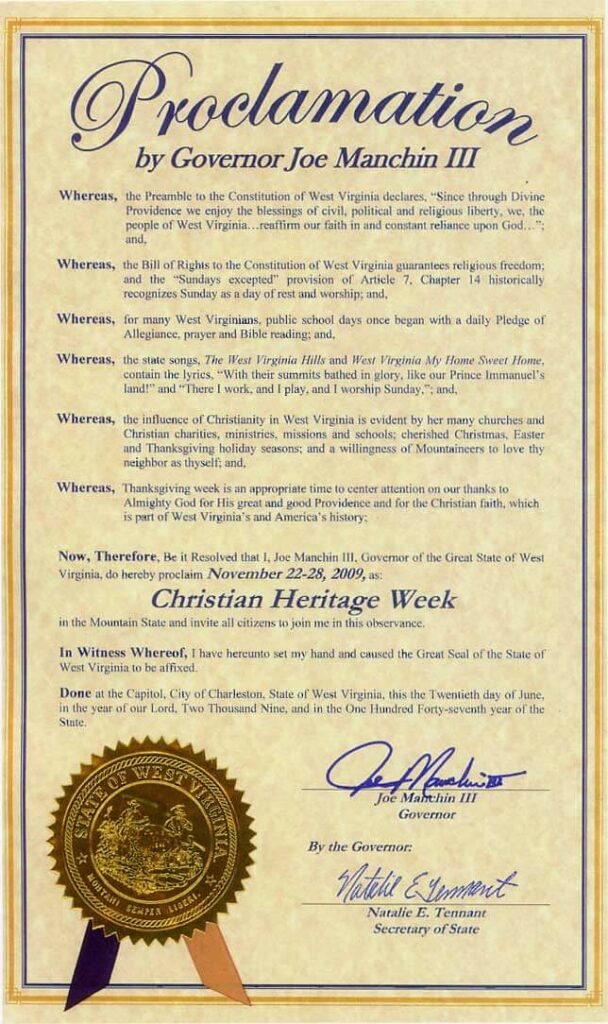 Proclamation
by Governor Joe Manchin III
Whereas, the Preamble to the Constitution of West Virginia declares, “Since through Divine
Providence we enjoy the blessings of civil, political and religious liberty, we, the
people of West Virginia…reaffirm our faith in and constant reliance upon God…”;
and,
Whereas, the Bill of Rights to the Constitution of West Virginia guarantees religious freedom;
and the “Sundays excepted” provision of Article 7, Chapter 14 historically
recognizes Sunday as a day of rest and worship; and,
Whereas, for many West Virginians, public school days once began with a daily Pledge of
Allegiance, prayer and Bible reading; and,
Whereas, the state songs, The West Virginia Hills and West Virginia My Home Sweet Home,
contain the lyrics, “With their summits bathed in glory, like our Prince Immanuel’s
land!” and “There I work, and I play, and I worship Sunday,”; and,
Whereas, the influence of Christianity in West Virginia is evident by her many churches and
Christian charities, ministries, missions and schools; cherished Christmas, Easter
and Thanksgiving holiday seasons; and a willingness of Mountaineers to love thy
neighbor as thyself; and,
Whereas, Thanksgiving week is an appropriate time to center attention on our thanks to
Almighty God for His great and good Providence and for the Christian faith, which
is part of West Virginia’s and America’s history;
Now, Therefore, Be it Resolved that I, Joe Manchin III, Governor of the Great State of West
Virginia, do hereby proclaim November 22-28, 2009, as:
Christian Heritage Week
in the Mountain State and invite all citizens to join me in this observance.
In Witness Whereof, I have hereunto set my hand and caused the Great Seal of the State of
West Virginia to be affixed.
Done at the Capitol, City of Charleston, State of West Virginia, this the Twentieth day of June,
in the year of our Lord, Two Thousand Nine, and in the One Hundred Forty-seventh year of the
State.
STATE OF WEST VIRGINIA
MONTANI SEMPER LIBERI
Joe Manchin III
Joe Manchin III
Governor
By the Governor:
Natalie E Tennant
Natalie E. Tennant
Secretary of State